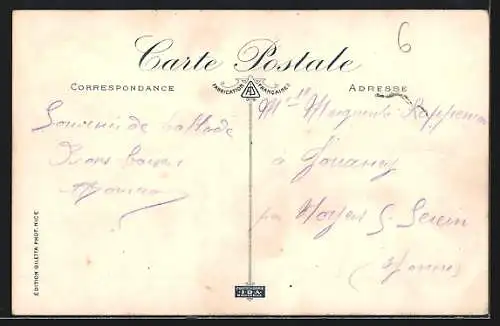 6
Carte Postale
CORRESPONDANCE
FABRICATION FRANÇAISE
ADRESSE
Souvenir de
Bons baisers
Mlle Marguerite
à Jouancy
par Noyers S. Serein
(Yonne)
EDITION GILETTA PHOT. NICE